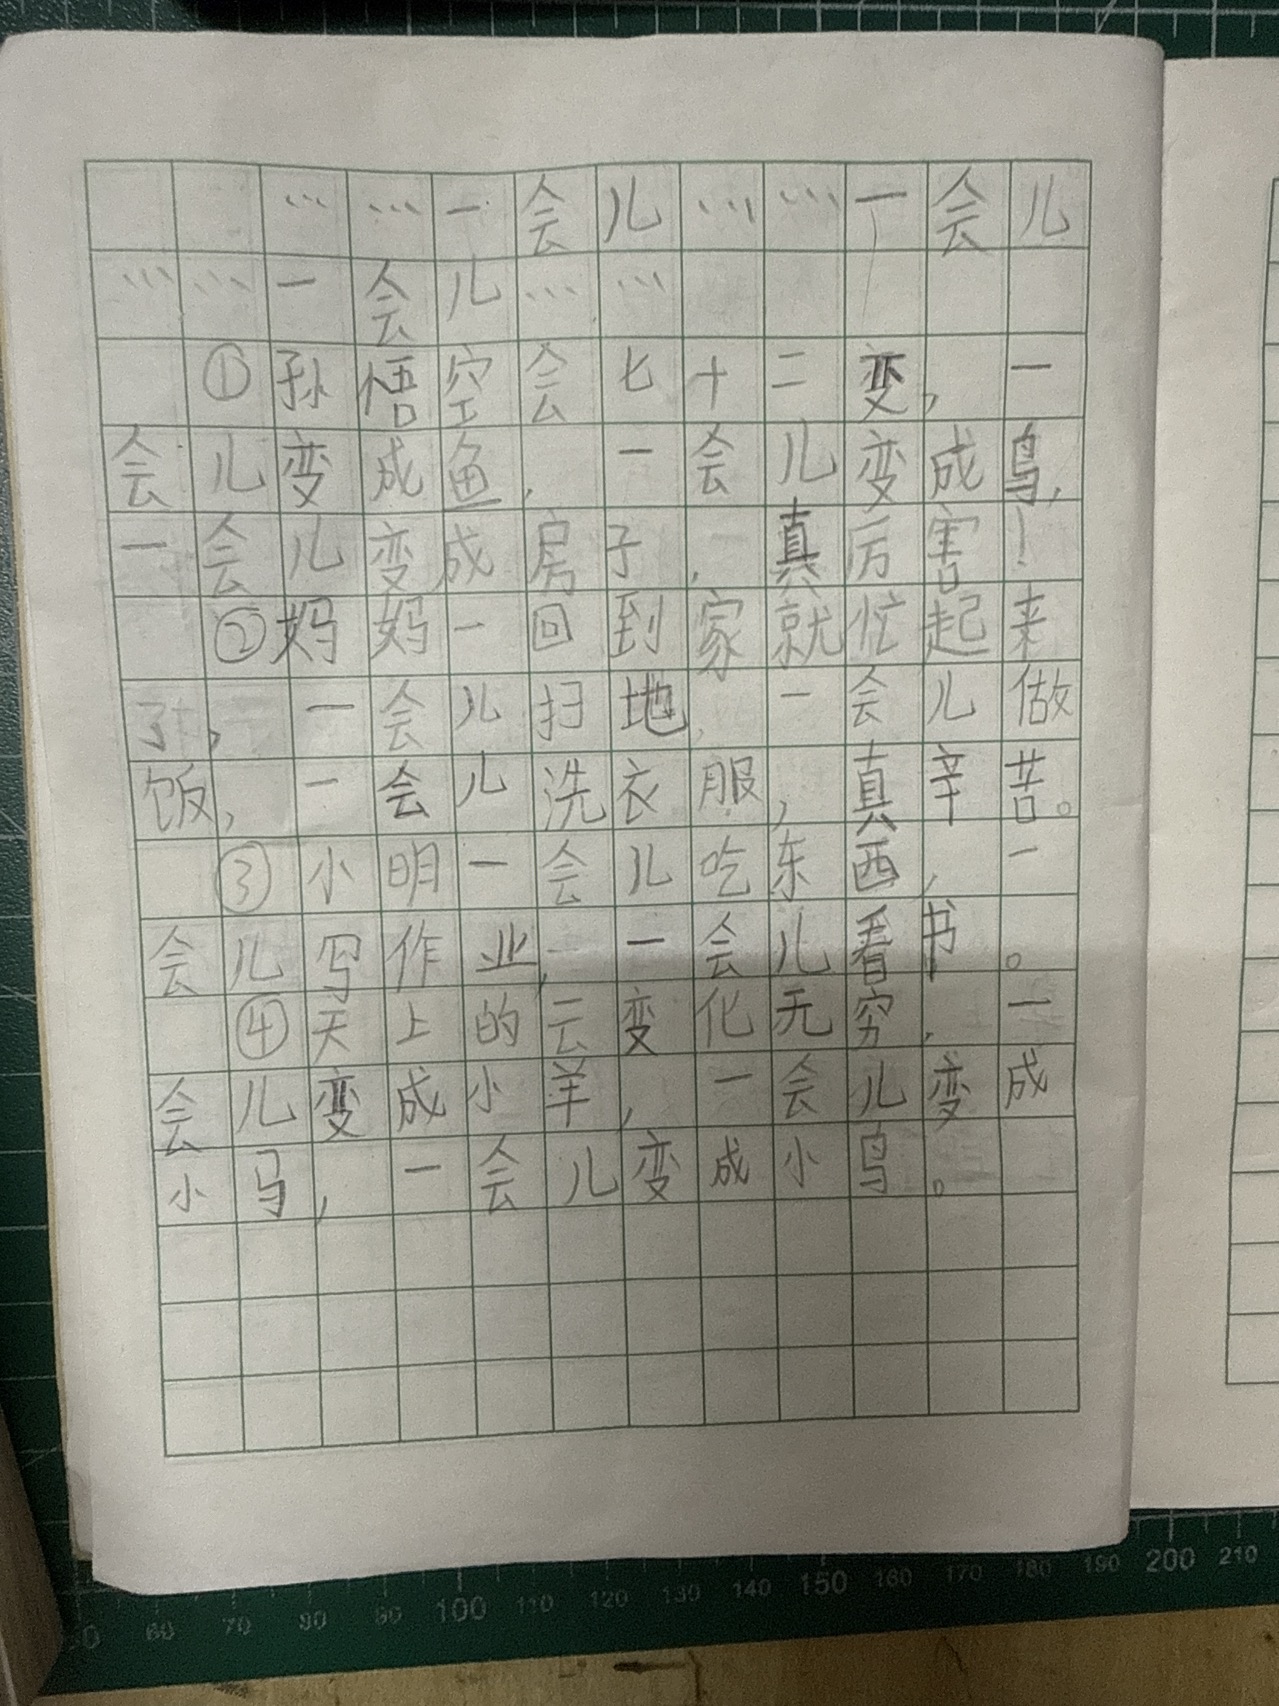 ……一会儿……一会儿
……一会儿……
①孙悟空会七十二变，一
会儿变成鱼，一会儿变成鸟，
一会儿变成房子，真厉害！
②妈妈一回到家就忙起来
了，一会儿扫地，一会儿做
饭，一会儿洗衣服，真辛苦。
③小明一会儿吃东西，一
会儿写作业，一会儿看书。
④天上的云变化无穷，一
会儿变成小羊，一会儿变成
小马，一会儿变成小鸟。
60 70 80 90 100 110 120 130 140 150 160 170 180 190 200 210